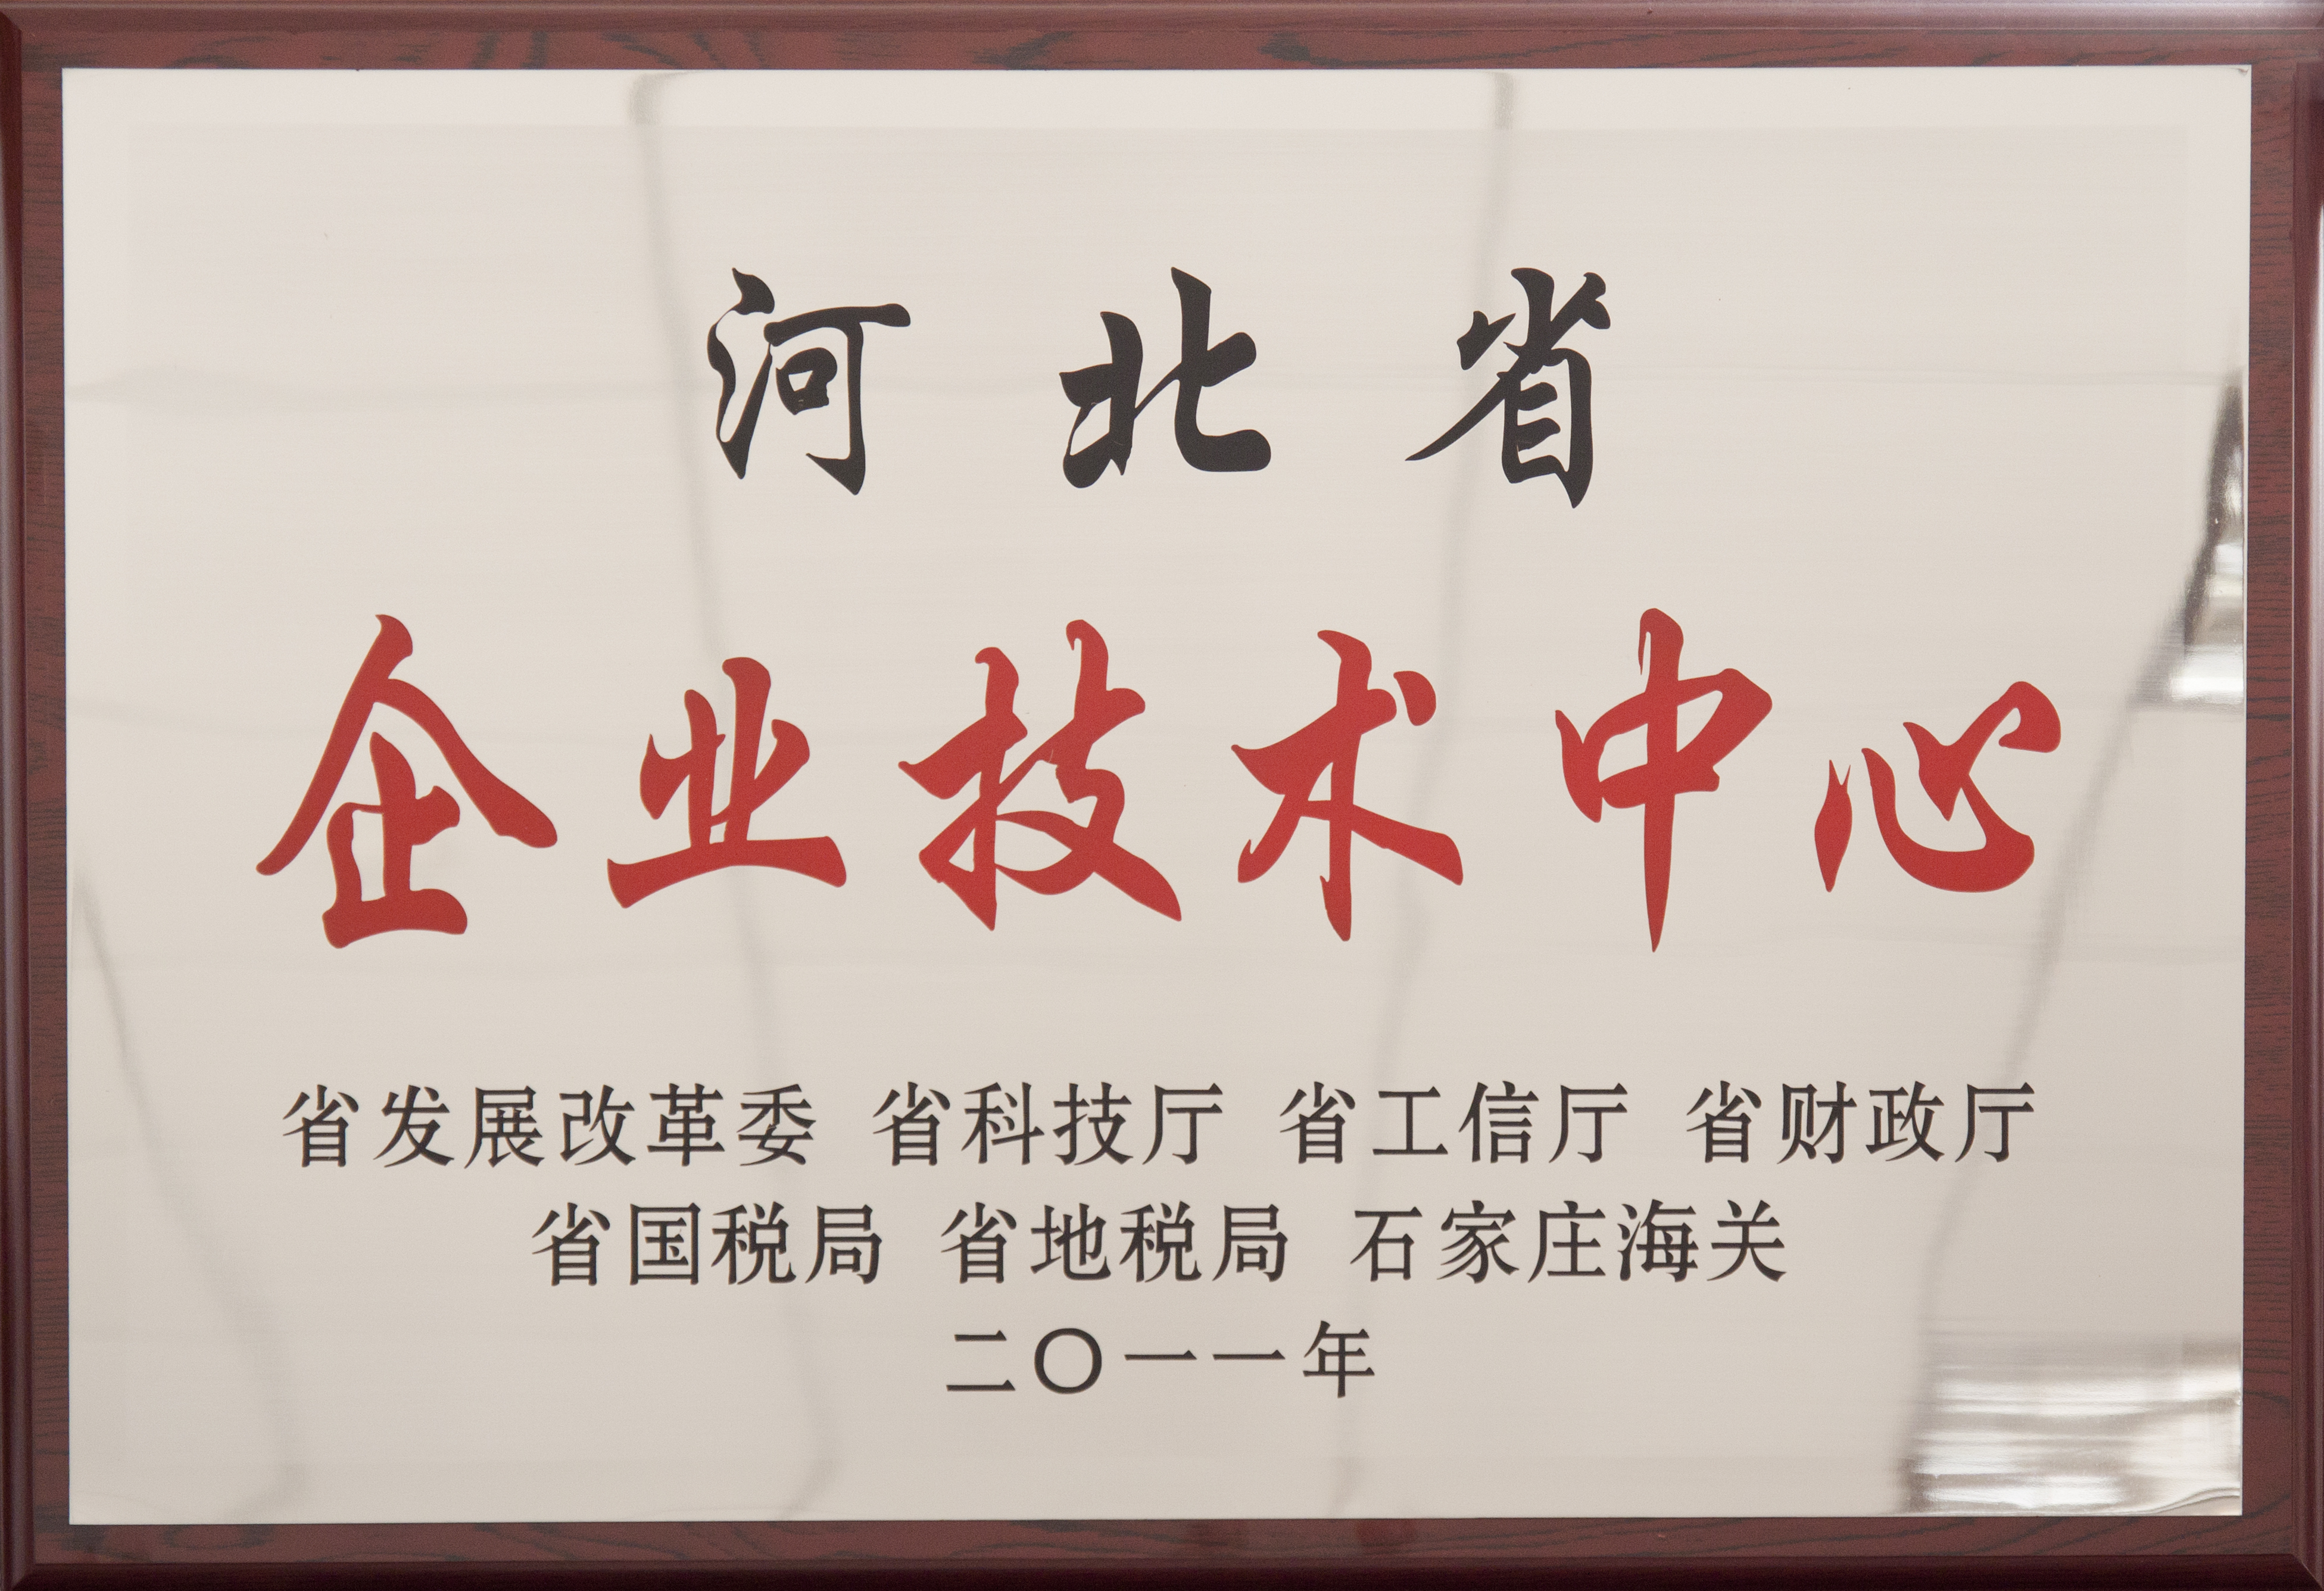 河北省
企业技术中心
省发展改革委 省科技厅 省工信厅 省财政厅
省国税局 省地税局 石家庄海关
二〇一一年